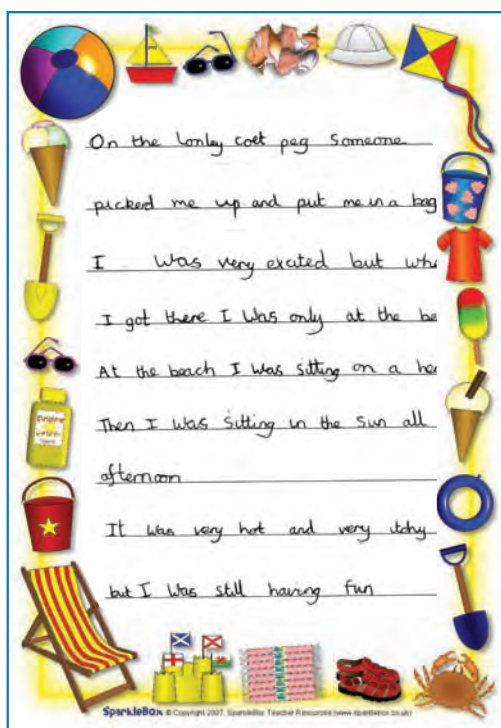 On the lonley coet peg someone
picked me up and put me in a bag
I was very excated but
I got there I was only at the
At the beach I was sitting on a
Then I was sitting in the sun all
afternoon
It was very hot and very itchy
but I was still having fun
SparkleBox © Copyright 2007, SparkleBox Teacher Resources (www.sparklebox.co.uk)